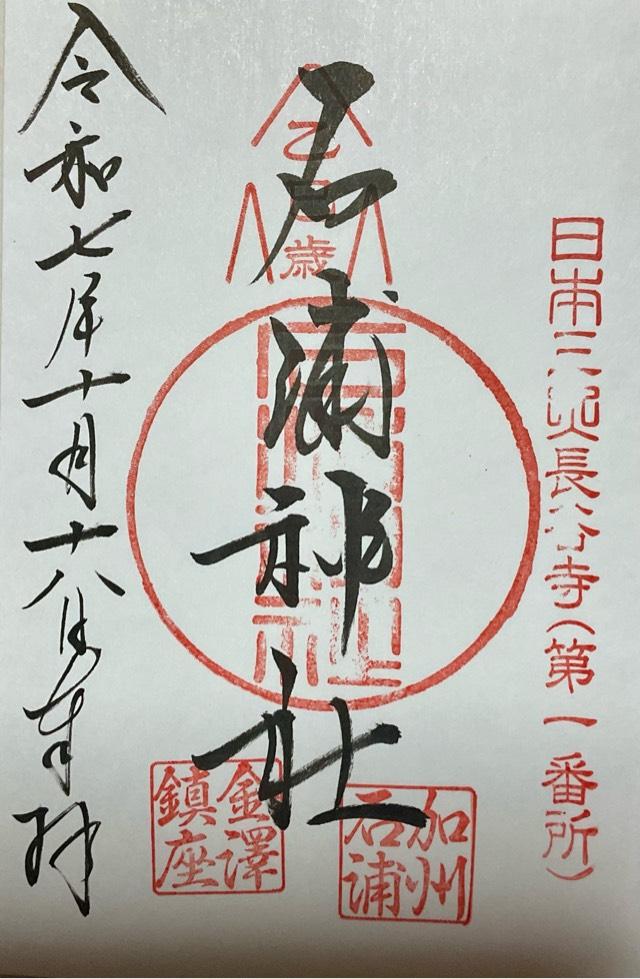 日本三処長谷寺（第一番所）
乙巳歳
石浦神社
石浦神社
加州
石浦
金澤
鎮座
令和七年十月十八日奉拝